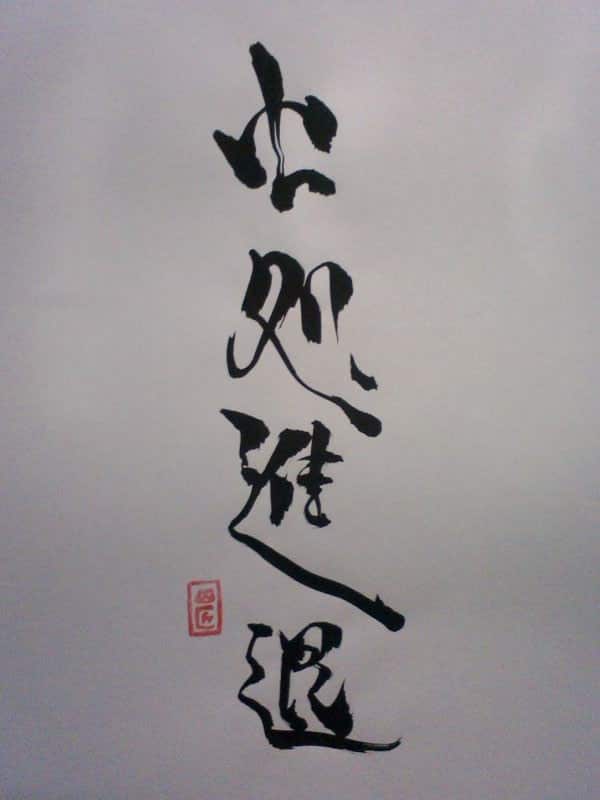 出処進退